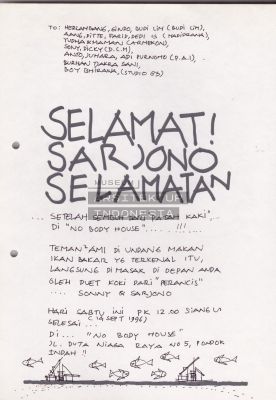 TO: HERLAMBANG, GINDO, BUDI LIM (BUDI LIM),
AANG, DITTE, FARID, DEDI IS (HADIPRANA),
YUDHA KHAMAN (ARMEKON),
SONY, DICKY (D.C.M),
ANTO, JUHARA, ADI PURNOMO (D.A.I),
BURHAN TJAKRA SANI,
BOY BHIRAWA, (STUDIO 83)
SELAMAT!
SARJONO
SELAMATAN
MUSEUM
ARSITEKTUR
INDONESIA
... SETELAH SEMBUH PATAH KAKI",..
DI "NO BODY HOUSE"..... !!!....
TEMAN2 AMI DI UNDANG MAKAN
IKAN BAKAR YG TERKENAL ITU,
LANGSUNG DI MASAK DI DEPAN ANDA
OLEH DUET KOKI DARI "PERANCIS"
.... SONNY & SARJONO
HARI SABTU INI PK 12.00 SIANG
SELESAI... (14 SEPT 1996)
DI.... "NO BODY HOUSE"
JL. DUTA NIAGA RAYA NO 5, PONDOK
INDAH !!